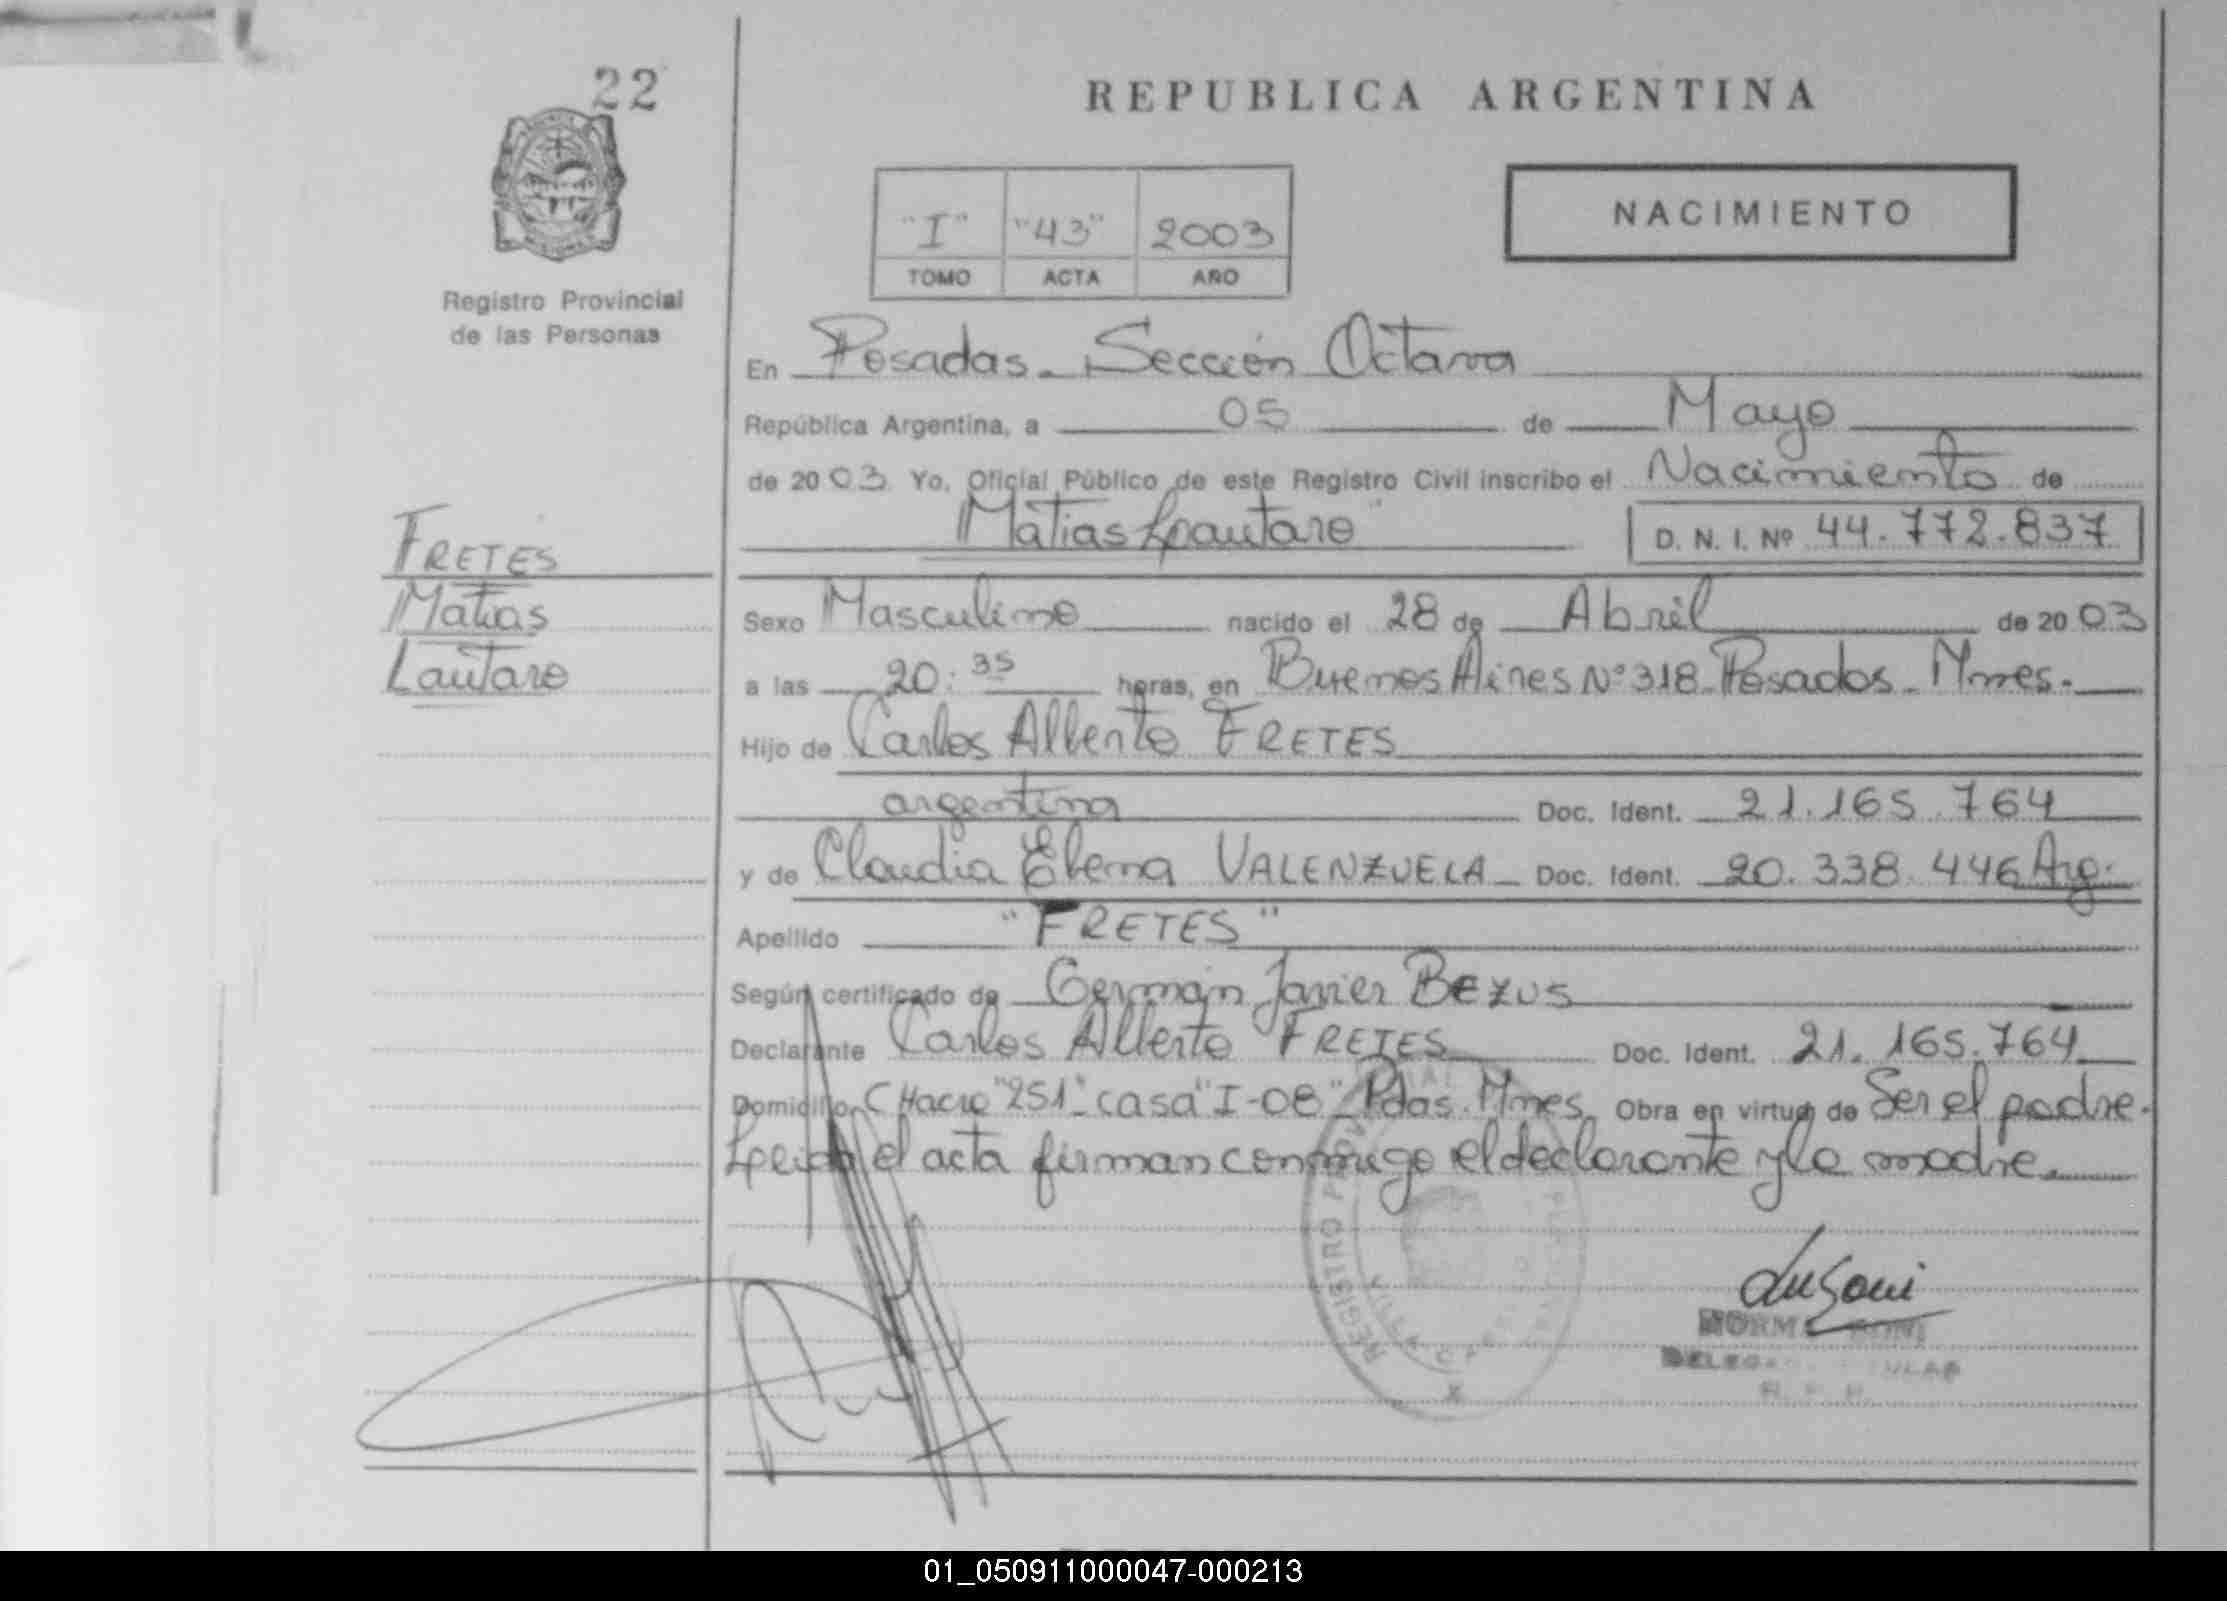 22
REPUBLICA ARGENTINA
"I" "43" 2003
TOMO ACTA AÑO
NACIMIENTO
Registro Provincial
de las Personas
En Posadas. Sección Octava
República Argentina, a 05 de Mayo
de 2003 Yo, Oficial Público de este Registro Civil inscribo el Nacimiento de
Matias Lautaro"
D. N. I. Nº 44.772.837
FRETES
Matias
Lautaro
Sexo Masculino nacido el 28 de Abril de 2003
a las 20:35 horas, en Buenos Aires Nº 318. Posadas. Mnes.
Hijo de Carlos Alberto FRETES
argentina Doc. Ident. 21.165.764
y de Claudia Elena VALENZUELA Doc. Ident. 20.338.446 Arg.
Apellido "FRETES"
Según certificado de Germán Javier BEZUS
Declarante Carlos Alberto FRETES Doc. Ident. 21.165.764
Domicilio CHacra "251" casa "I-08" Pdas. Mnes. Obra en virtud de Ser el padre.
Leida el acta firman conmigo el declarante y la madre.
REGISTRO PROVINCIAL
VILLA
NORMA
R. P. P.
01_050911000047-000213